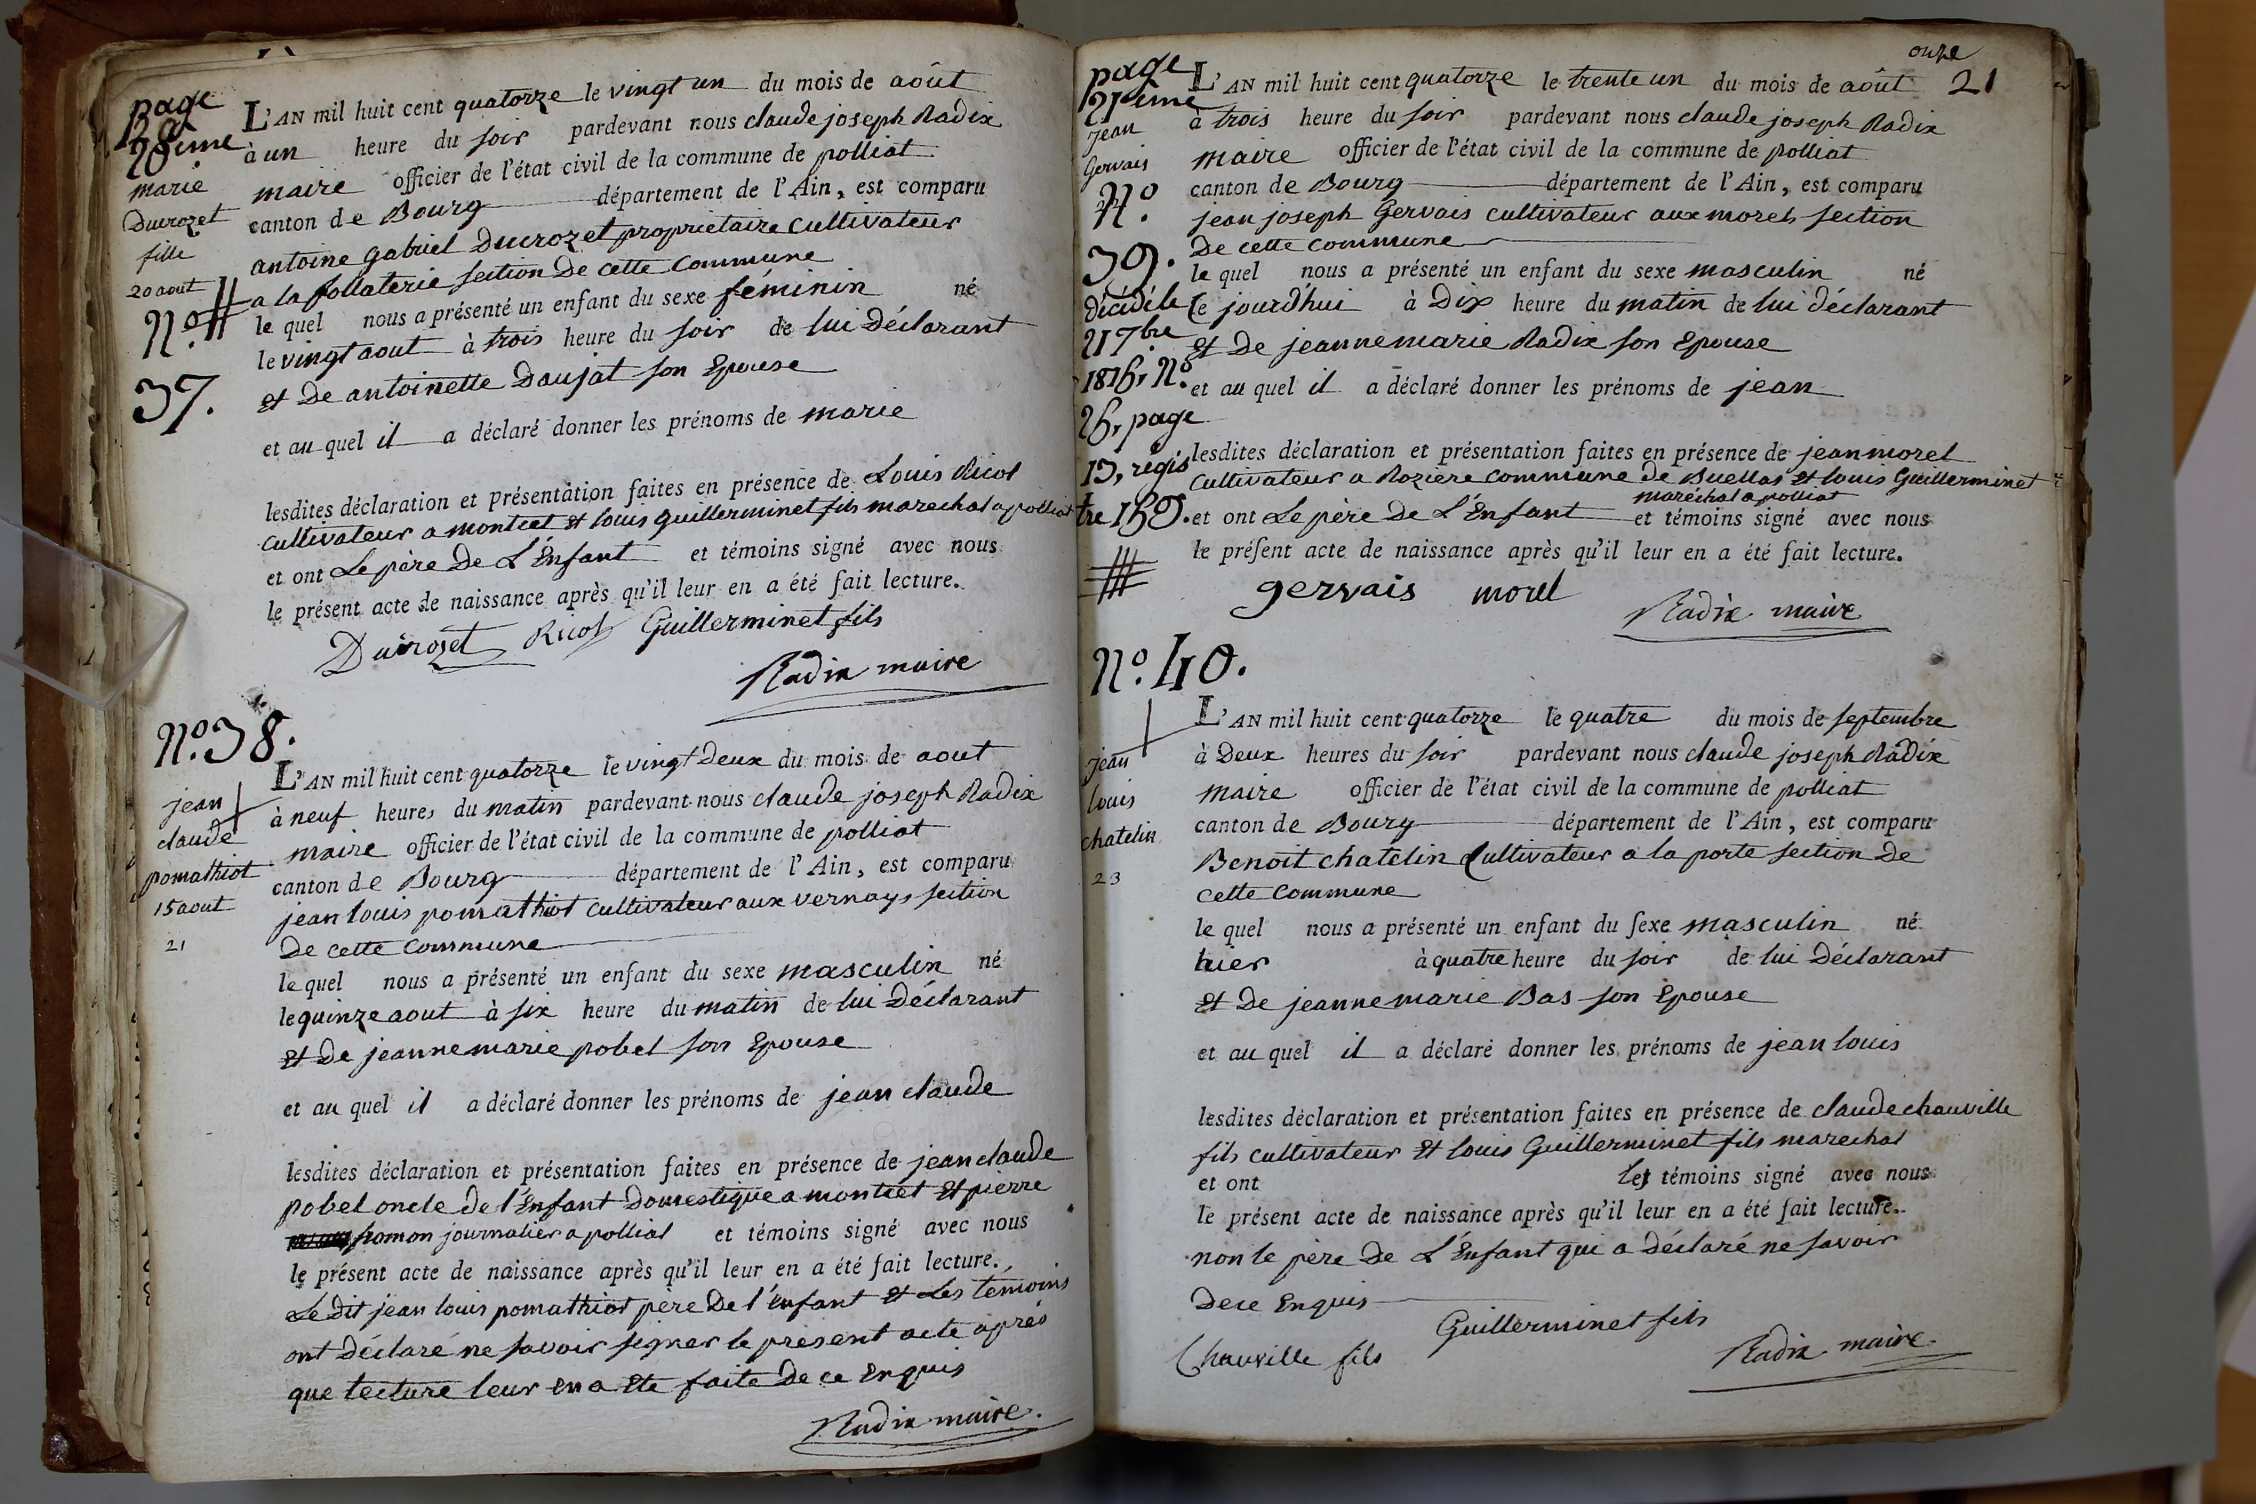 page
20eme
marie
Ducrozet
fille
20 aout
N.o
37.
L'AN mil huit cent quatorze le vingt un du mois de août
à un heure du soir pardevant nous claude joseph Radix
maire officier de l'état civil de la commune de polliat
canton de Bourg département de l'Ain, est comparu
antoine gabriel Ducrozet propriétaire cultivateur
a la follaterie section De cette commune
le quel nous a présenté un enfant du sexe féminin né
le vingt aout à trois heure du soir de lui Déclarant
et De antoinette Daujat son Epouse
et au quel il a déclaré donner les prénoms de marie
lesdites déclaration et présentation faites en présence de Louis Ricol
cultivateur a montcet et louis guillerminet fils marechal a polliat
et ont Le père De L'Enfant et témoins signé avec nous
le présent acte de naissance après qu'il leur en a été fait lecture.
Ducrozet Ricol Guillerminet fils
Radix maire
N.o 38.
jean
claude
pomathiot
15 aout
21
L'AN mil huit cent quatorze le vingt Deux du mois de aout
à neuf heures du matin pardevant nous claude joseph Radix
maire officier de l'état civil de la commune de polliat
canton de Bourg département de l'Ain, est comparu
jean louis pomathiot cultivateur aux vernays section
De cette commune
le quel nous a présenté un enfant du sexe masculin né
le quinze aout à six heure du matin de lui Déclarant
et De jeanne marie pobel son Epouse
et au quel il a déclaré donner les prénoms de jean claude
lesdites déclaration et présentation faites en présence de jean claude
pobel oncle de l'Enfant Domestique a montcet et pierre
homon journalier a polliat et témoins signé avec nous
le présent acte de naissance après qu'il leur en a été fait lecture.,
Le dit jean louis pomathiot père De l'enfant et Les temoins
ont déclaré ne savoir signer le présent acte après
que lecture leur en a été faite De ce Enquis
Radix maire.
onze
21
page
21eme
jean
Gervais
N.o
39.
décédé le
21 7.bre
1816, N.o
26, page
13, régis
tre 159.
L'AN mil huit cent quatorze le trente un du mois de août
à trois heure du soir pardevant nous claude joseph Radix
maire officier de l'état civil de la commune de polliat
canton de Bourg département de l'Ain, est comparu
jean joseph Gervais cultivateur aux morels section
De cette commune
le quel nous a présenté un enfant du sexe masculin né
Ce jourd'hui à Dix heure du matin de lui déclarant
et De jeanne marie Radix son Epouse
et au quel il a déclaré donner les prénoms de jean
lesdites déclaration et présentation faites en présence de jean morel
cultivateur a Roziere commune de Buellas et louis Guillerminet
maréchal a polliat
et ont Le père De L'Enfant et témoins signé avec nous
le présent acte de naissance après qu'il leur en a été fait lecture.
gervais morel
Radix maire
N.o 40.
jean
louis
chatelin
23
L'AN mil huit cent quatorze le quatre du mois de septembre
à Deux heures du soir pardevant nous claude joseph Radix
maire officier de l'état civil de la commune de polliat
canton de Bourg département de l'Ain, est comparu
Benoit chatelin Cultivateur a la porte section De
cette commune
le quel nous a présenté un enfant du sexe masculin né
hier à quatre heure du soir de lui Déclarant
et De jeanne marie Bas son Epouse
et au quel il a déclaré donner les prénoms de jean louis
lesdites déclaration et présentation faites en présence de claude chauville
fils cultivateur et louis Guillerminet fils marechal
et ont Les témoins signé avec nous
le présent acte de naissance après qu'il leur en a été fait lecture.
non le père De L'Enfant qui a déclaré ne savoir
De ce Enquis
Guillerminet fils
Chauville fils Radix maire.